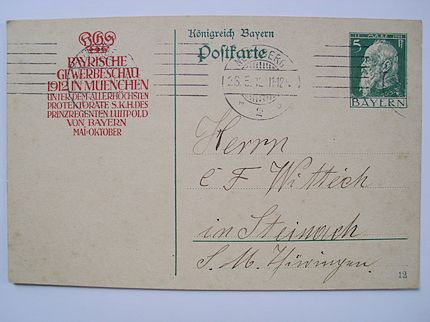 BGS
BAYRISCHE
GEWERBESCHAU
1912 IN MUENCHEN
UNTER DEM ALLERHÖCHSTEN
PROTEKTORATE S.K.H. DES
PRINZREGENTEN LUITPOLD
VON BAYERN
MAI-OKTOBER
Königreich Bayern
Postkarte
5 Pf
BAYERN
2
Herrn
C F Wittich
in Steinach
S. M. Thüringen.
12